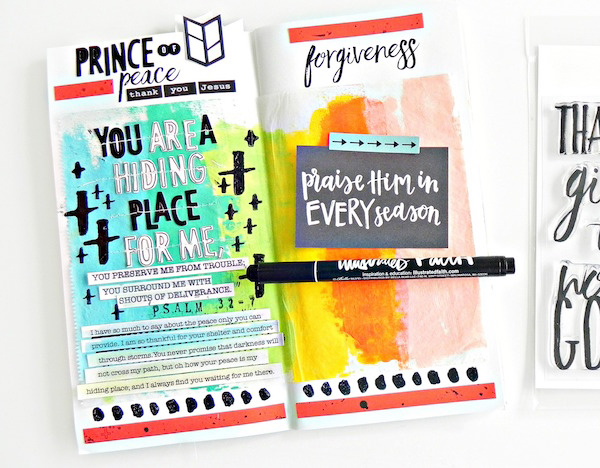 PRINCE OF
peace
thank you Jesus
YOU ARE A
HIDING
PLACE
FOR ME,
YOU PRESERVE ME FROM TROUBLE;
YOU SURROUND ME WITH
SHOUTS OF DELIVERANCE.
PSALM 32-7
I have so much to say about the peace only you can
provide. I am so thankful for your shelter and comfort
through storms. You never promise that darkness will
not cross my path, but oh how your peace is my
hiding place, and I always find you waiting for me there.
forgiveness
praise Him in
EVERY season
illustrated Faith
inspiration & education: illustratedfaith.com
THA
gi
GO